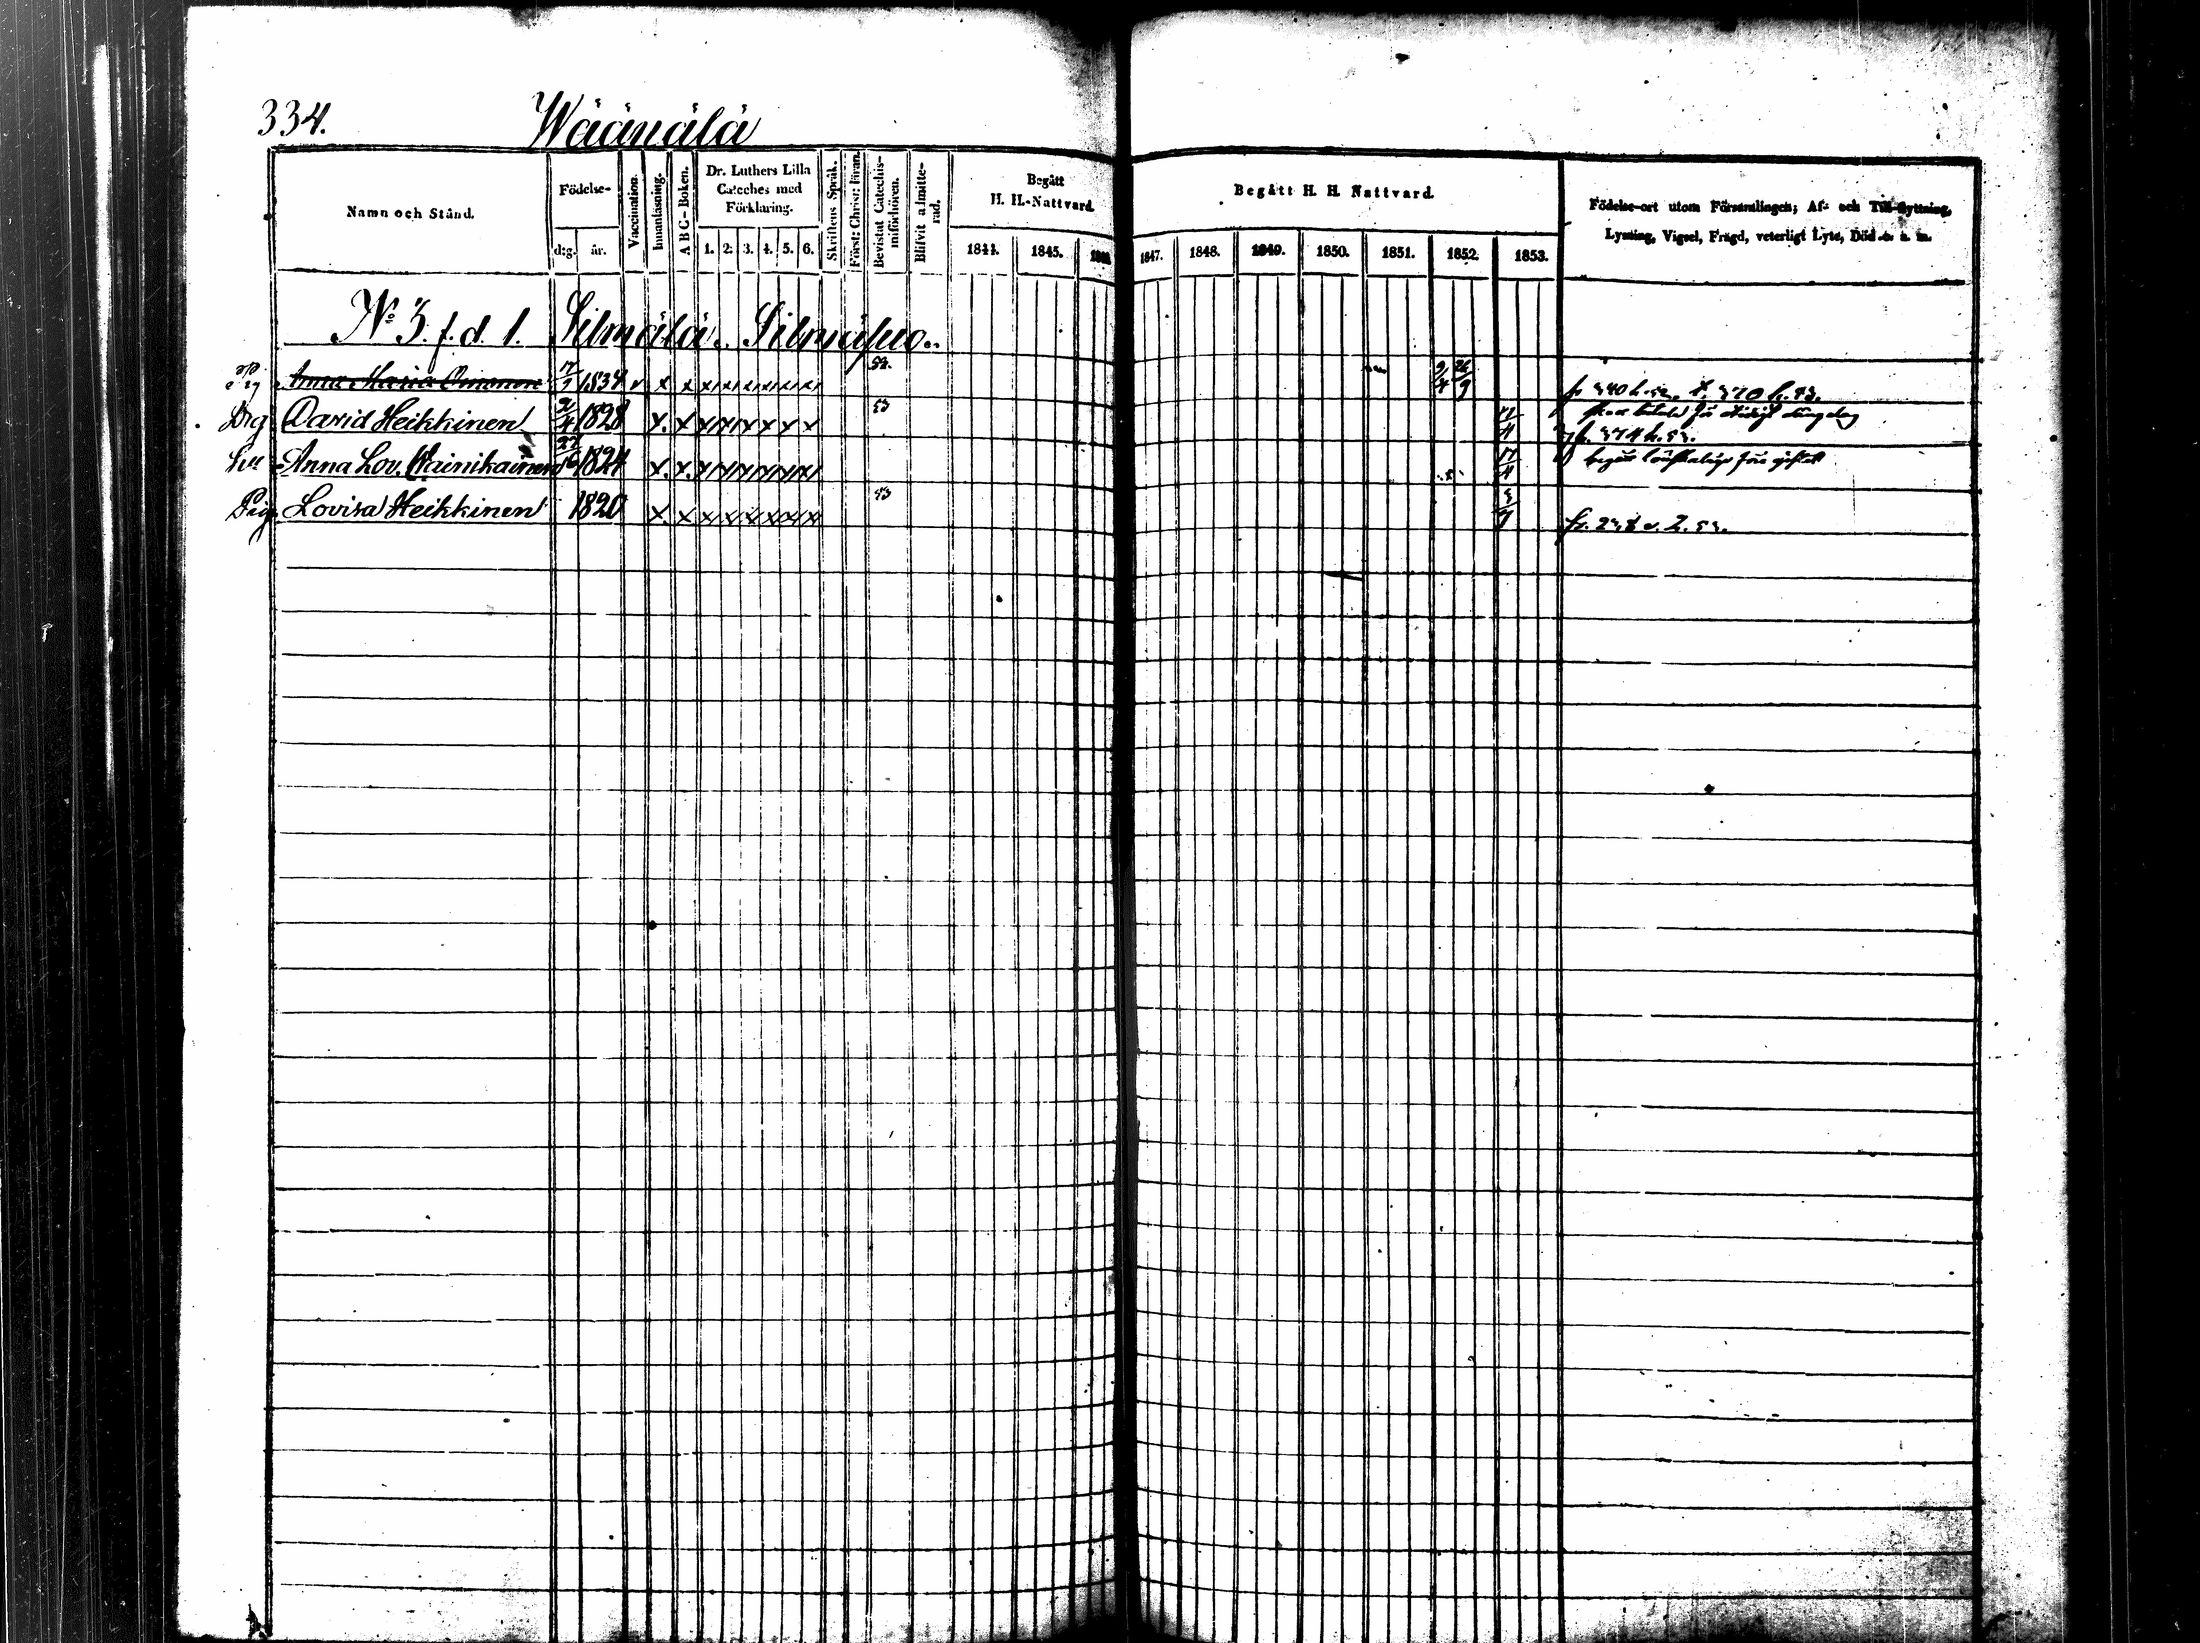 334.
Wäänälä
Namn och Stånd.
Födelse-
d:g. år.
Vaccination.
Innanläsning.
A B C - Boken.
Dr. Luthers Lilla
Cateches med
Förklaring.
1. 2. 3. 4. 5. 6.
Skriftens Språk.
Först: Christ: Fram.
Bevistat Catechis-
miförhören.
Blifvit admitte-
rad.
Begått
H. H.-Nattvard
1844. 1845.
Begått H. H. Nattvard.
1847. 1848. 1849. 1850. 1851. 1852. 1853.
Födelse-ort utom Församlingen; Af- och Till-flyttning,
Lysning, Vigsel, Frägd, veterligt Lyte, Död o. s. m.
No 3. f. d. 1. Silmälä
Pig Anna Maria 17/7 1834 v x x x x x x x x 52. 9/4 26/9
Drg David Heikkinen 1828 x. x x x x x x x 53
Hu Anna Lov. Wainikainen 1824 x. x. x x x x x x
Pig Lovisa Heikkinen 1820 x. x x x x x x x 53